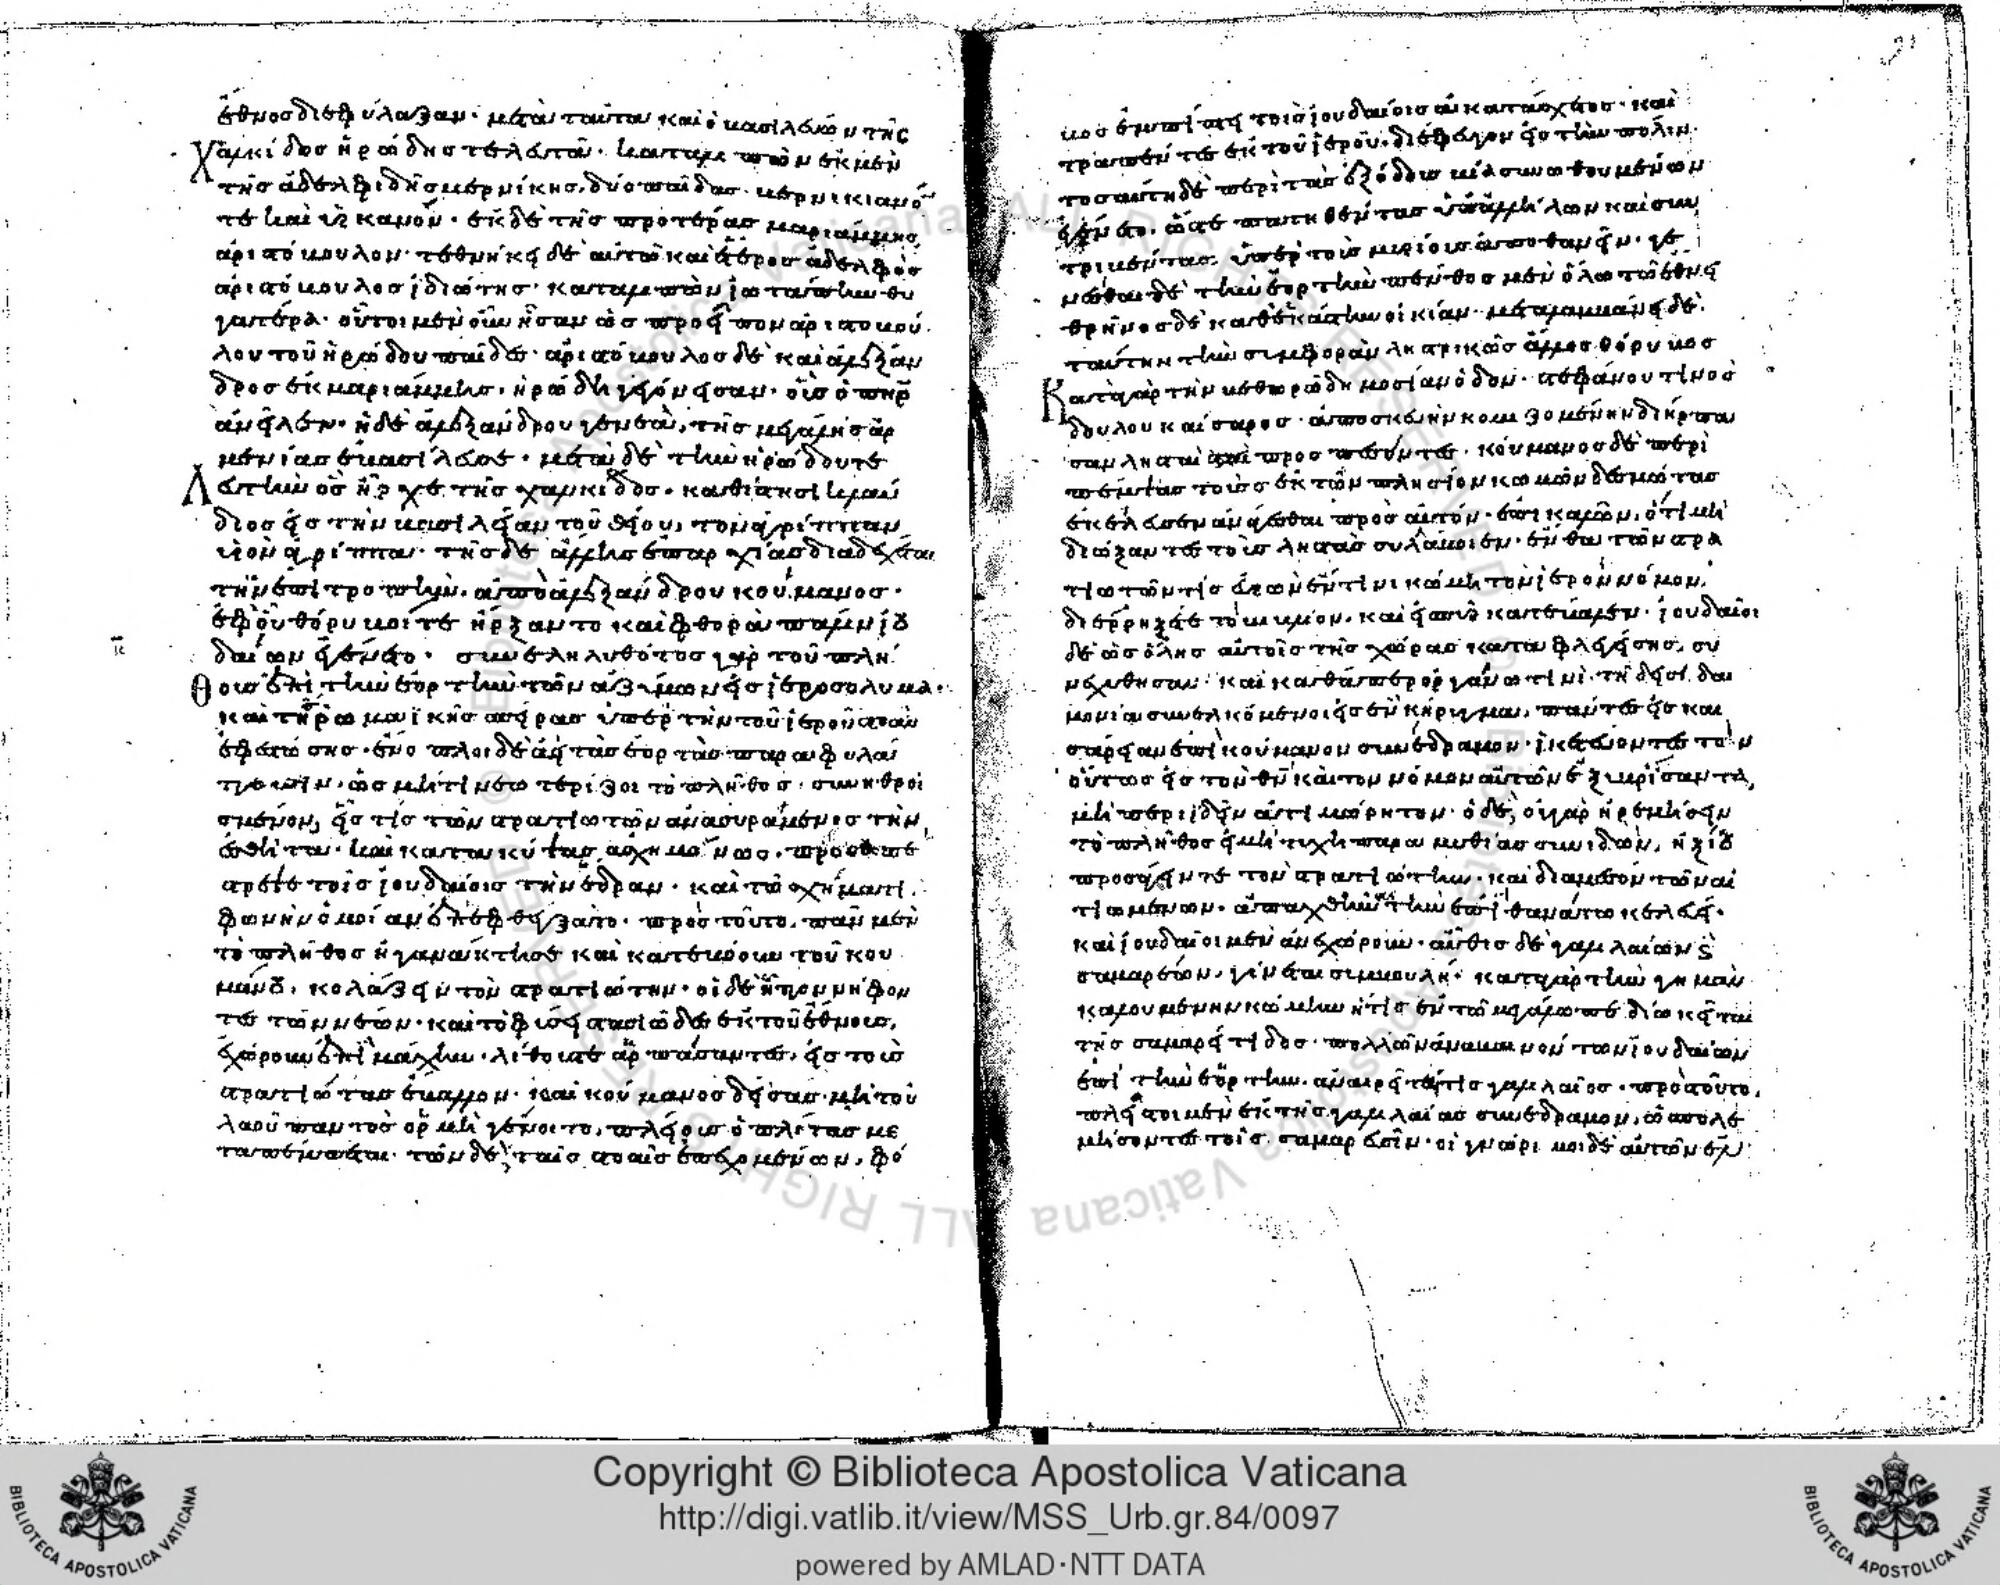 ἔθνος διεφύλαξαν· μετὰ ταῦτα καὶ ὁ βασιλεύων τῆς
Χαλκίδος ἡρώδης τελευτᾶ· καταλιπὼν ἐκ μὲν
τῆς ἀδελφιδῆς βερνίκης, δύο παῖδας· βερνικιανόν
τε καὶ ὑρκανόν· ἐκ δὲ τῆς προτέρας μαριάμμης
ἀριστόβουλον· τεθνήκει δὲ αὐτῶ καὶ ἕτερος ἀδελφὸς
ἀριστόβουλος ἰδιώτης· καταλιπὼν ἰωτάπην θυ
γατέρα· οὗτοι μὲν οὖν ἦσαν ὡς προεῖπον ἀριστοβού
λου τοῦ ἡρώδου παῖδες· ἀριστόβουλος δὲ καὶ ἀλέξαν
δρος ἐκ μαριάμμης, ἡρώδη γεγόνεισαν· οὓς ὁ πατὴρ
ἀνεῖλεν· ἡ δὲ ἀλεξάνδρου γενεὰ, τῆς μεγάλης ἀρ
μενίας ἐβασίλευσε· μετὰ δὲ τὴν ἡρώδου τε
Λευτὴν ὃς ἦρχε τῆς χαλκίδος· καθίστησι κλαύ
διος εἰς τὴν βασιλείαν τοῦ θείου, τὸν ἀγρίππαν
υἱὸν ἀγρίππα· τῆς δὲ ἄλλης ἐπαρχίας διαδέχεται
τὴν ἐπιτροπὴν, ἀπὸ ἀλεξάνδρου κούμανος·
ἐφ' οὗ θόρυβοί τε ἤρξαντο καὶ φθορὰ πάλιν ἰου
δαίων ἐγένετο· συνεληλυθότος γὰρ τοῦ πλή
Θους ἐπὶ τὴν ἑορτὴν τῶν ἀζύμων εἰς ἱεροσόλυμα·
καὶ τῆς ῥωμαϊκῆς σπείρας ὑπὲρ τὴν τοῦ ἱεροῦ στοὰν
ἐφεστώσης· ἔνοπλοι δὲ ἀεὶ τὰς ἑορτὰς παραφυλάτ
τουσιν, ὡς μή τι νεωτερίζοι τὸ πλῆθος συνηθροι
σμένον, εἷς τις τῶν στρατιωτῶν ἀνασυράμενος τὴν
ἐσθῆτα· καὶ κατακύψας ἀσχημόνως, προσαπέ
στρεψε τοῖς ἰουδαίοις τὴν ἕδραν· καὶ τῶ σχήματι
φωνὴν ὁμοίαν ἐπεφθέγξατο· πρὸς τοῦτο, πᾶν μὲν
τὸ πλῆθος ἠγανάκτησε καὶ κατεβόων τοῦ κου
μάνου, κολάζειν τὸν στρατιώτην· οἱ δὲ ἧττον νήφον
τες τῶν νέων· καὶ τὸ φύσει στασιῶδες ἐκ τοῦ ἔθνους,
ἐχώρουν ἐπὶ μάχην· λίθους τε ἁρπάσαντες, εἰς τοὺς
στρατιώτας ἔβαλλον· καὶ κούμανος δείσας μὴ τοῦ
λαοῦ παντὸς ὁρμὴ γένοιτο, πλείους ὁπλίτας με
ταπέμπεται· τῶν δὲ, ταῖς στοαῖς ἐπεχομένων, φό
βος ἐμπίπτει τοῖς ἰουδαίοις ἀκατάσχετος· καὶ
τραπέντες ἐκ τοῦ ἱεροῦ, διέφευγον εἰς τὴν πόλιν·
τοσαύτη δὲ περὶ τὰς ἐξόδους βία συνωθουμένων
ἐγένετο, ὥστε πατηθέντας ὑπ' ἀλλήλων καὶ συν
τριβέντας, ὑπὲρ τοὺς μυρίους ἀποθανεῖν· γε
νέσθαι δὲ τὴν ἑορτὴν πένθος μὲν ὅλω τῶ ἔθνει
θρῆνος δὲ καθ' ἑκάστην οἰκίαν· μεταλαμβάνει δὲ
ταύτην τὴν συμφορὰν ληστρικὸς ἄλλος θόρυβος
Κατὰ γὰρ τὴν βεθωρῶ δημοσίαν ὁδὸν· στεφάνου τινὸς
δούλου καίσαρος· ἀποσκευὴν κομιζομένην διήρπα
σαν λησταὶ προσπεσόντες· κούμανος δὲ περι
πέμψας τοὺς ἐκ τῶν πλησίον κωμῶν δεσμώτας
ἐκέλευσεν ἀνάγεσθαι πρὸς αὐτόν· ἐπικαλῶν, ὅτι μὴ
διώξαντες τοὺς ληστὰς συλλάβοιεν· ἔνθα τῶν στρα
τιωτῶν τίς εὑρὼν ἔν τινι κώμη τὸν ἱερὸν νόμον,
διέρρηξέ τε τὸ βιβλίον, καὶ εἰς πῦρ κατέβαλεν· ἰουδαῖοι
δὲ ὡς ὅλης αὐτοῖς τῆς χώρας καταφλεγείσης, συ
νεχύθησαν· καὶ καθάπερ ὀργάνω τινὶ τῆ δεισιδαι
μονία συνελκόμενοι εἰς ἓν κήρυγμα, πάντες εἰς και
σάρειαν ἐπὶ κούμανον συνέδραμον· ἱκετεύοντες τὸν
οὕτως εἰς τὸν θν καὶ τὸν νόμον αὐτῶν ἐξυβρίσαντα,
μὴ περιϊδεῖν ἀτιμώρητον· ὁ δὲ, οὐ γὰρ ἠρέμησεν
τὸ πλῆθος εἰ μὴ τύχη παραμυθίας συνιδὼν, ἠξίου
προσάγειν τε τὸν στρατιώτην· καὶ διὰ μέσον τῶν αἰ
τιωμένων· ἀπαχθῆναι τὴν ἐπὶ θανάτω κελεύει·
καὶ ἰουδαῖοι μὲν ἀνεχώρουν· αὖθις δὲ γαλιλαίων καὶ
σαμαρέων, γίνεται συμβολή· κατὰ γὰρ τὴν γημὰν
καλουμένην κώμην ἥτις ἐν τῶ μεγάλω πεδίω κεῖται
τῆς σαμαρείτιδος· πολλῶν ἀναβαινόντων ἰουδαίων
ἐπὶ τὴν ἑορτὴν, ἀναιρεῖταί τις γαλιλαῖος· πρὸς τοῦτο,
πλεῖστοι μὲν ἐκ τῆς γαλιλαίας συνέδραμον, ὡς πολε
μήσοντες τοῖς σαμαρεῦσιν· οἱ γνώριμοι δὲ αὐτῶν ἐλ
Copyright © Biblioteca Apostolica Vaticana
http://digi.vatlib.it/view/MSS_Urb.gr.84/0097
powered by AMLAD·NTT DATA